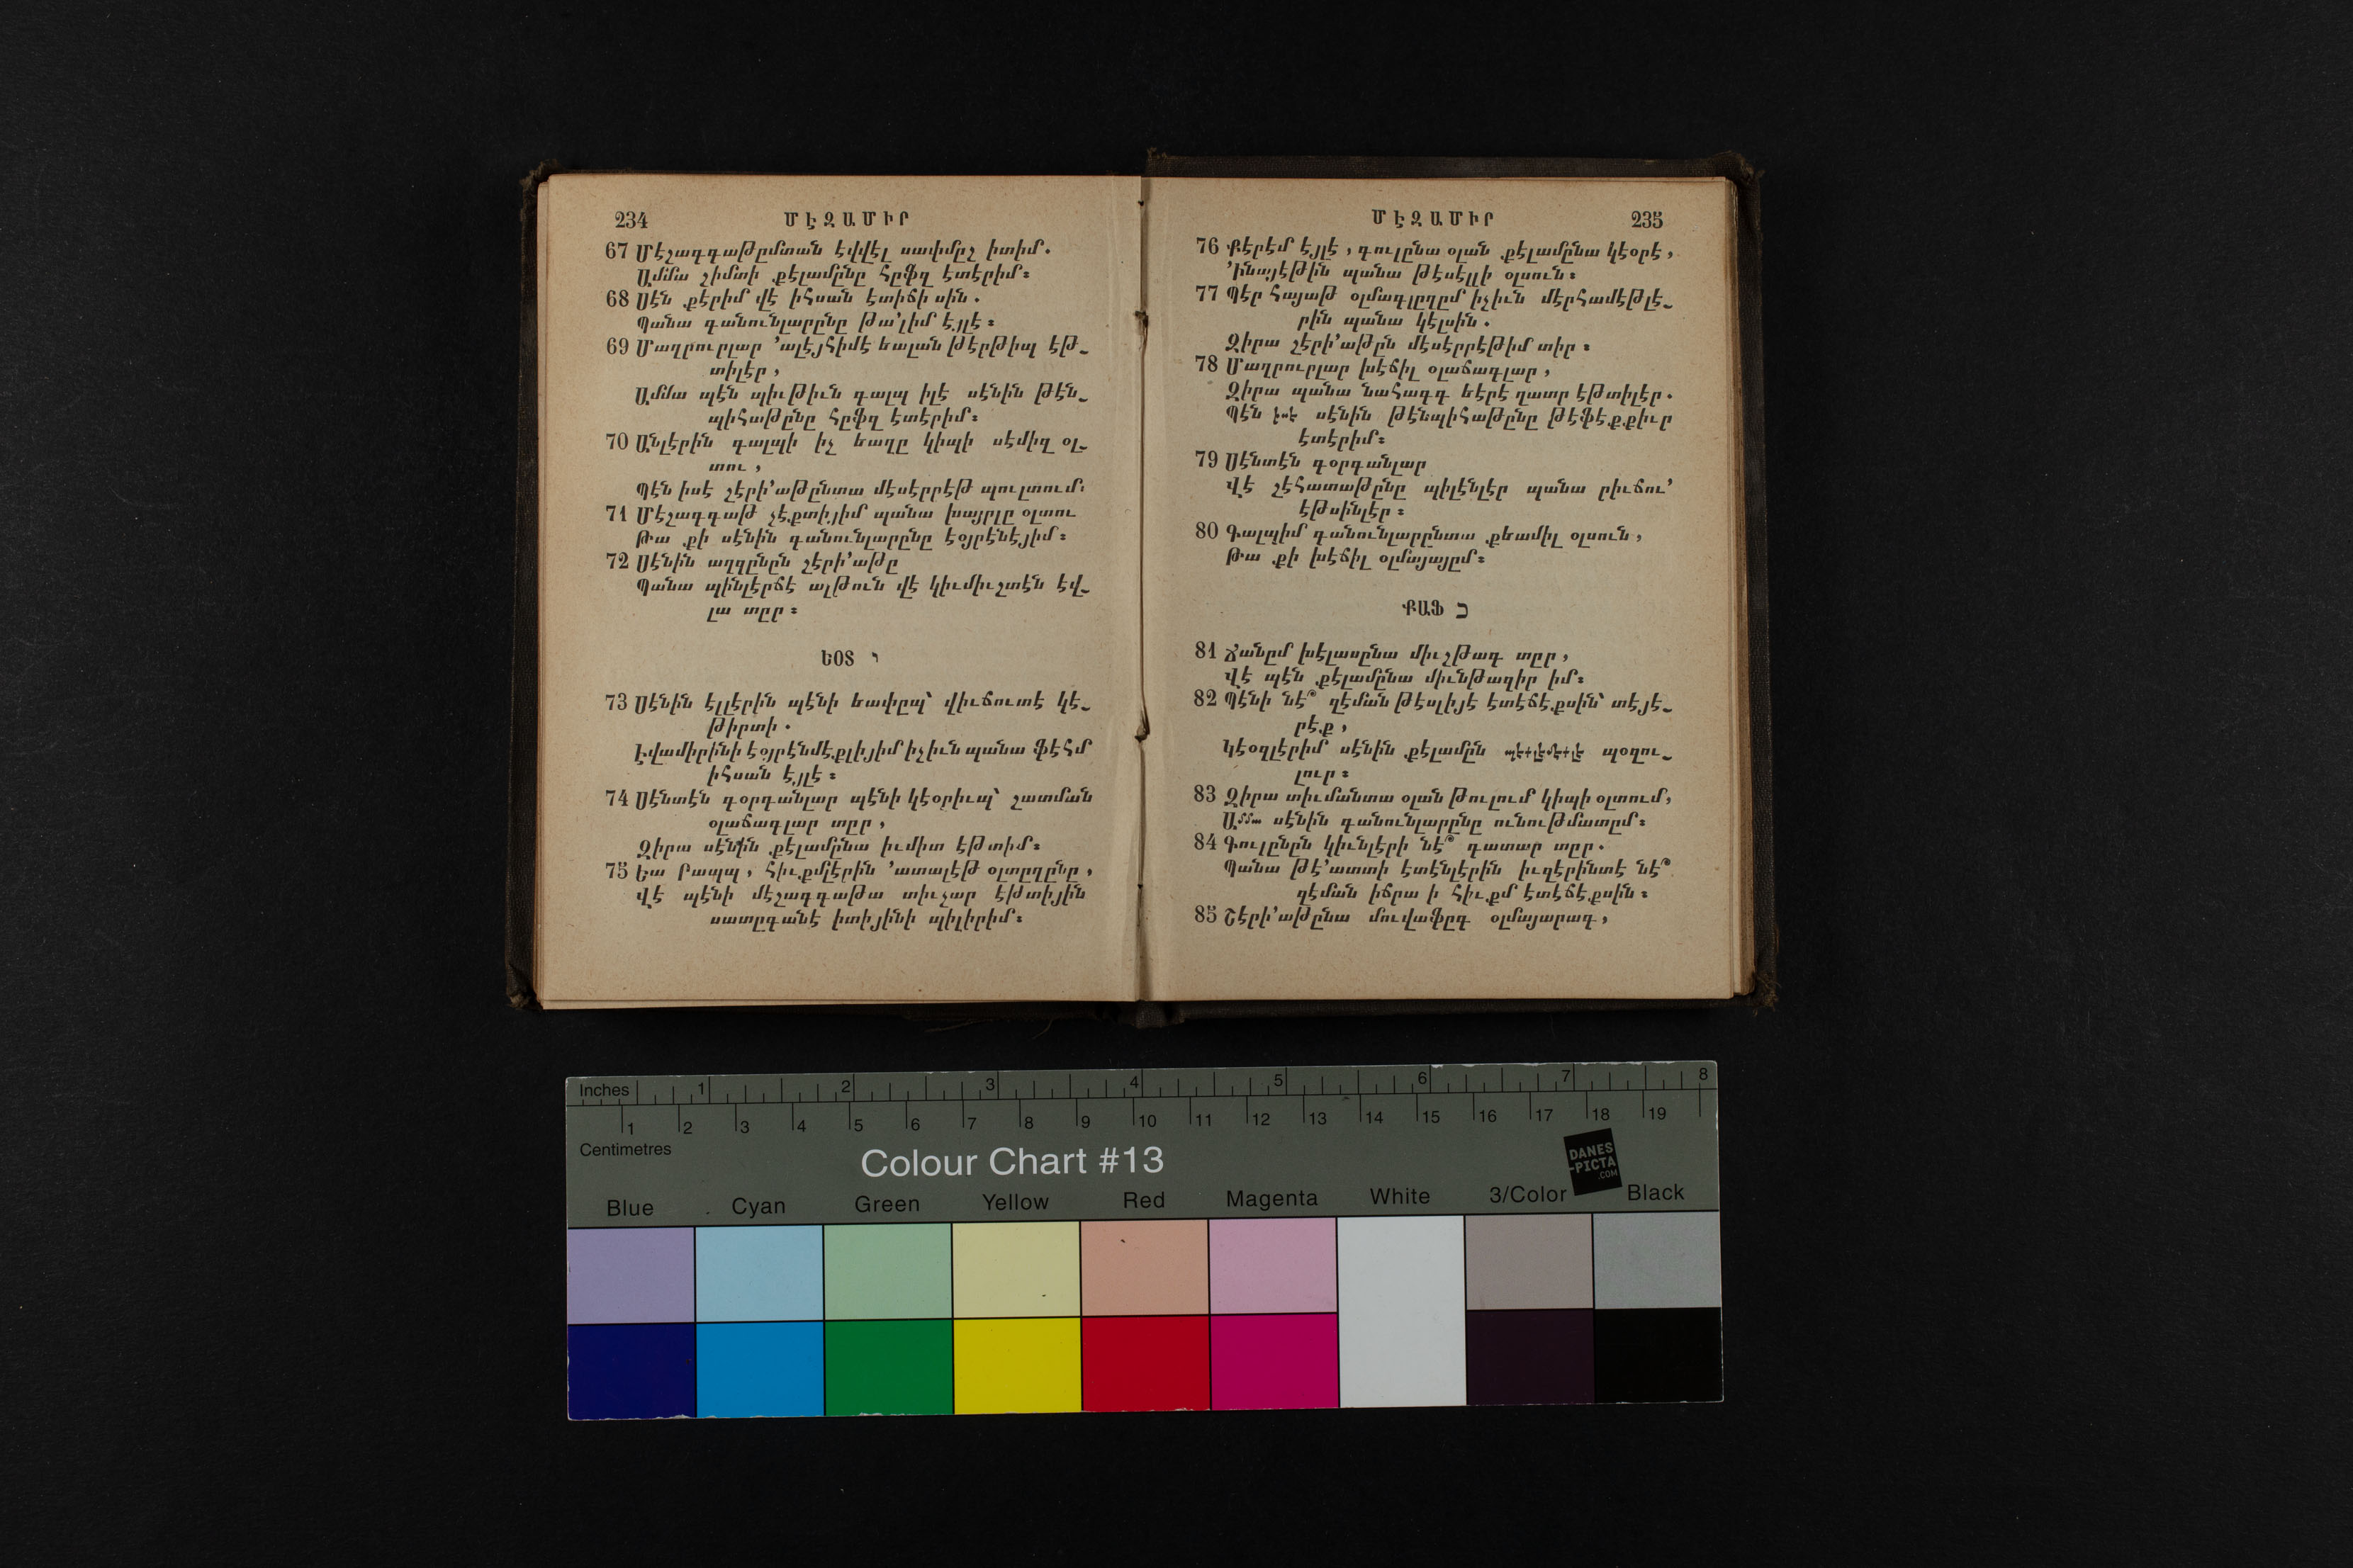 234 ՄԷԶԱՄԻՐ
67 Մէշագգաթըմտան էվվէլ սափմըշ իտիմ.
Ամմա շիմտի քէլամընը հըֆզ էտէրիմ։
68 Սէն քէրիմ վէ իհսան էտիճի սին.
Պանա գանունլարընը թա՚լիմ էյլէ։
69 Մաղրուրլար ՚ալէյհիմէ եալան թէրթիպ էթ֊
տիլէր,
Ամմա պէն պիւթիւն գալպ իլէ սէնին թէն֊
պիհաթընը հըֆզ էտէրիմ։
70 Անլէրին գալպի իչ եաղը կիպի սէմիզ օլ֊
տու,
Պէն իսէ շէրի՚աթընտա մէսէրրէթ պուլտում։
71 Մէշագգաթ չէքտիյիմ պանա խայրլը օլտու
Թա քի սէնին գանունլարընը էօյրէնէյիմ։
72 Սէնին աղզընըն շէրի՚աթը
Պանա պինլէրճէ ալթուն վէ կիւմիւշտէն էվ֊
լա տըր։
ԵՕՏ י
73 Սէնին էլլէրին պէնի եափըպ՝ վիւճուտէ կէ֊
թիրտի.
Էվամիրինի էօյրէնմէքլիյիմ իչիւն պանա ֆէհմ
իհսան էյլէ։
74 Սէնտէն գօրգանլար պէնի կէօրիւպ՝ շատման
օլաճագլար տըր,
Զիրա սէնին քէլամընա իւմիտ էթտիմ։
75 Եա Րապպ, հիւքմլէրին ՚ատալէթ օլտըղընը,
Վէ պէնի մէշագգաթա տիւչար էթտիյին
սատըգանէ իտիյինի պիլիրիմ։
ՄԷԶԱՄԻՐ 235
76 Քէրէմ էյլէ, գուլընա օլան քէլամընա կէօրէ,
՚Ինայէթին պանա թէսէլլի օլսուն։
77 Պէր հայաթ օլմագլըղըմ իչիւն մէրհամէթլէ֊
րին պանա կէլսին.
Զիրա շէրի՚աթըն մէսէրրէթիմ տիր։
78 Մաղրուրլար խէճիլ օլաճագլար,
Զիրա պանա նահագգ եէրէ ղատր էթտիլէր.
Պէն իսէ սէնին թէնպիհաթընը թէֆէքքիւր
էտէրիմ։
79 Սէնտէն գօրգանլար
Վէ շէհատաթընը պիլէնլէր պանա րիւճու՚
էթսինլէր։
80 Գալպիմ գանունլարընտա քեամիլ օլսուն,
Թա քի խէճիլ օլմայայըմ։
ՔԱՖ כ
81 Ճանըմ խէլասընա միւշթագ տըր,
Վէ պէն քէլամընա միւնթազիր իմ։
82 Պէնի նէ՞ զէման թէսլիյէ էտէճէքսին՝ տէյէ֊
րէք,
Կէօզլէրիմ սէնին քէլամըն պէքլէմէքլէ պօզու֊
լուր։
83 Զիրա տիւմանտա օլան թուլում կիպի օլտում,
Ամմա սէնին գանունլարընը ունութմատըմ։
84 Գուլընըն կիւնլէրի նէ՞ գատար տըր.
Պանա թէ՚ատտի էտէնլէրին իւզէրինտէ նէ՞
զէման իճրա ի հիւքմ էտէճէքսին։
85 Շէրի՚աթընա մուվաֆըգ օլմայարագ,
Inches 1 2 3 4 5 6 7 8
1 2 3 4 5 6 7 8 9 10 11 12 13 14 15 16 17 18 19
Centimetres
Colour Chart #13
DANES
-PICTA
.COM
Blue Cyan Green Yellow Red Magenta White 3/Color Black